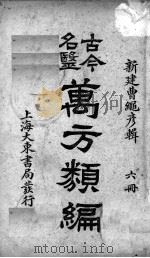 新建曹繩彥輯 六冊
古今
名醫
萬方類編
上海大東書局發行